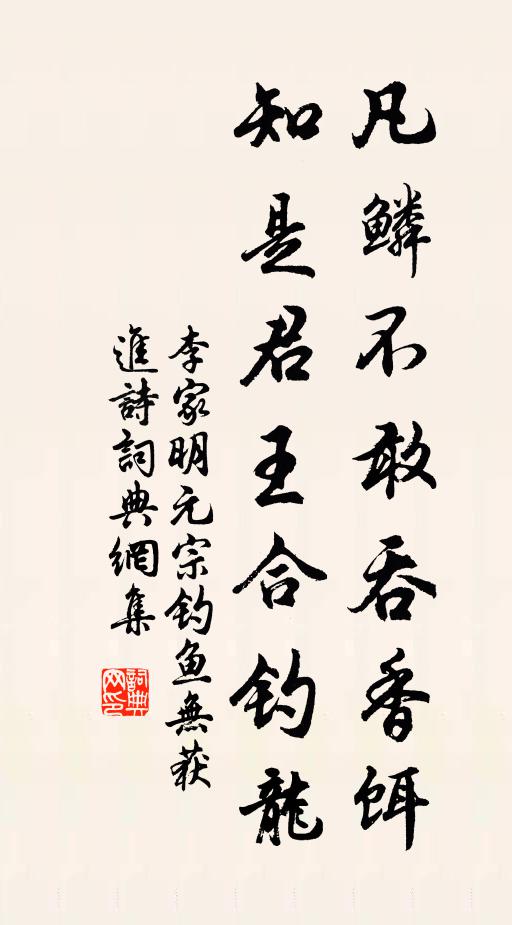 凡鳞不敢吞香饵
知是君王合钓龍
李家明元宗钓鱼無获
進詩詞典網集
詞典网印